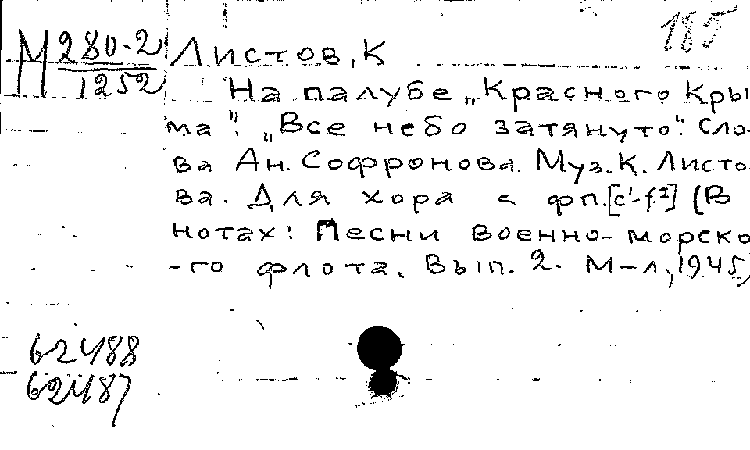 185
М 280-2 Листов, К
1252
На палубе „Красного Кры
ма". „Все небо затянуто". Сло-
ва Ан. Софронова. Муз. К. Листо-
ва. Для хора с фп. [c'-f²] (В
нотах: Песни военно-морско
-го флота. Вып. 2. М-л, 1945)
62488
62487